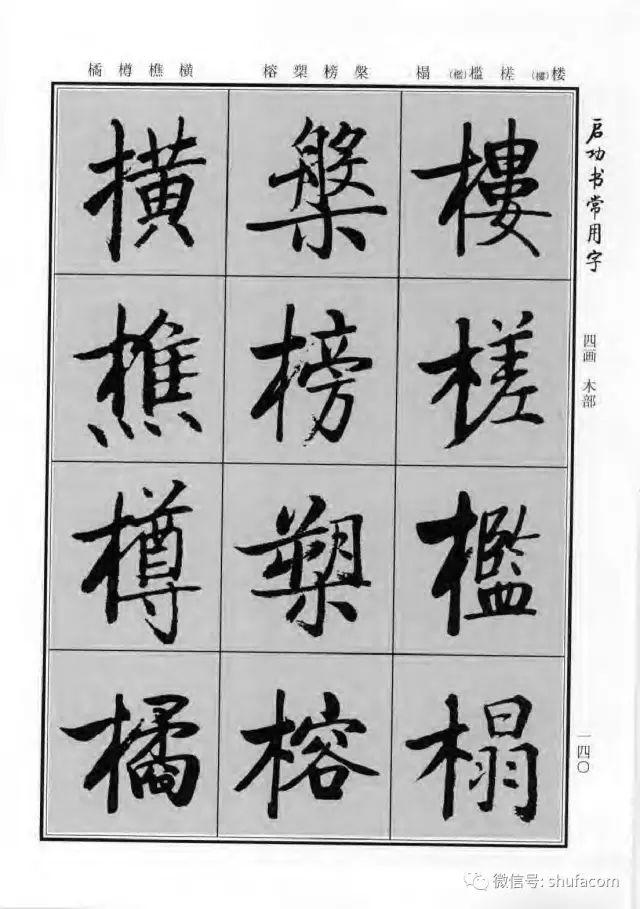 橘樽樵横 榕槊榜槃 榻(檻)槛槎(樓)楼
启功书常用字
四画 木部
樓 槃 横
槎 榜 樵
檻 槊 樽
榻 榕 橘
一四〇
微信号: shufacom